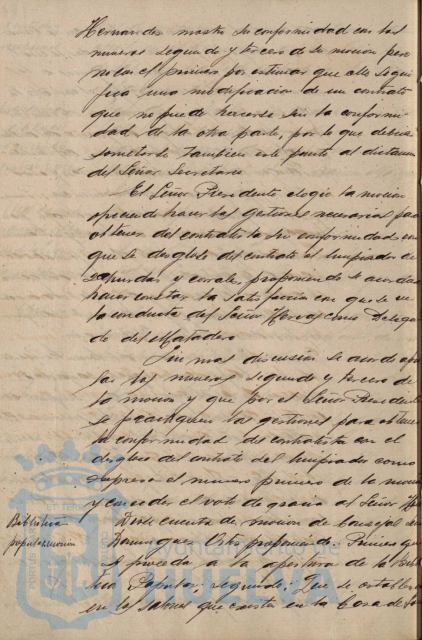 Hernandez mostró su conformidad con los
numeros segundo y tercero de su mocion pero
no con el primero por estimar que ello signi
fica una modificacion de un contrato
que no puede hacerse sin la conformi
dad de la otra parte, por lo que debia
someterse tambien este punto al dictamen
del Señor Secretario
El Señor Presidente elogió la mocion
ofreciendo hacer las gestiones necesarias para
obtener del contratista su conformidad con
que se desglose del contrato el limpiador de
y corrales proponiendo se acordara
hacer constar la satisfacción con que se ve
la conducta del Señor Hervas como Delega
do del Matadero
Sin mas discusion se acordó apro
bar los numeros segundo y tercero de
la mocion y que por el Señor Presidente
se practiquen las gestiones para obtener
la conformidad del contratista con el
desglose del contrato del limpiador como
expresa el numero primero de la mocion
y conceder el voto de gracia al Señor
Biblioteca
popular mocion
Diose cuenta de mocion del Concejal Señor
Dominguez proponiendo: Primero que
se proceda a la apertura de la Biblio
teca Popular, segundo: Que se establezca
en los salones que existen en la Casa de
Ayuntamiento de
HUELVA